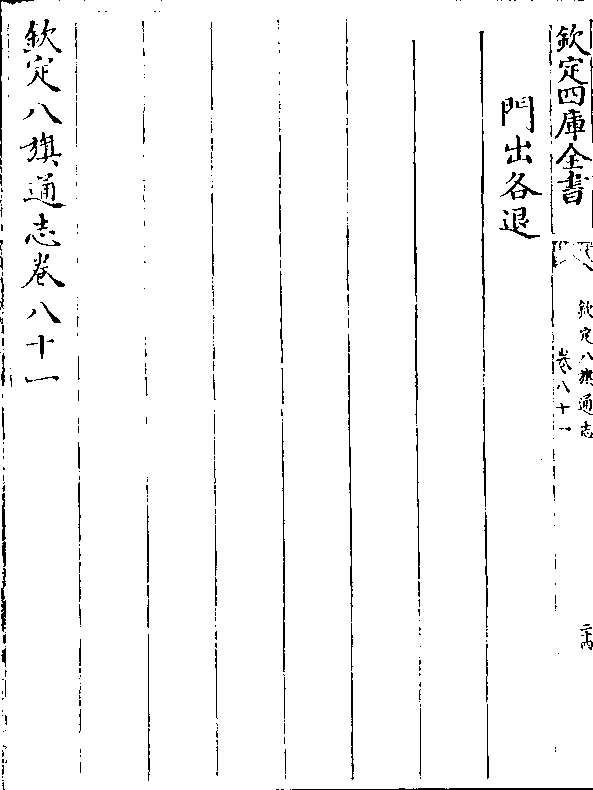 欽定四庫全書
欽定八旗通志
卷八十一
門出各退
欽定八旗通志卷八十一